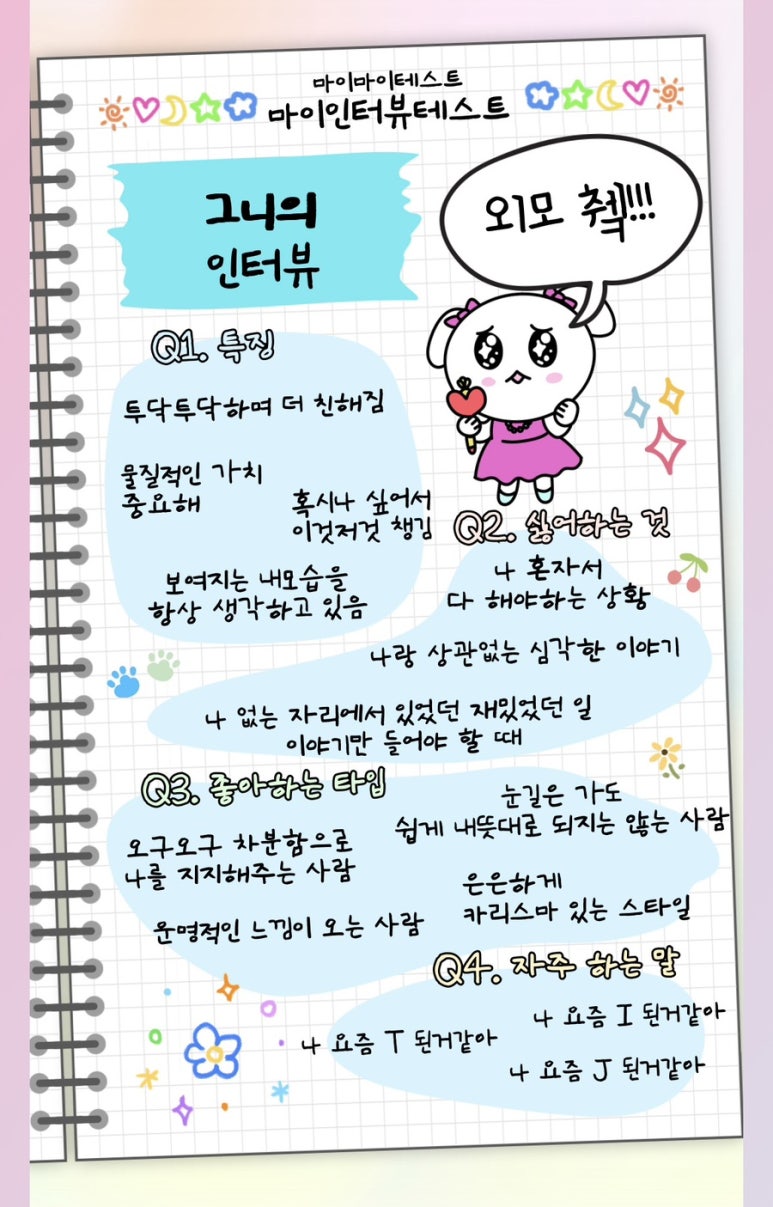 마이마이테스트
마이인터뷰테스트
그니의
인터뷰
외모 췍!!!
Q1. 특징
투닥투닥하며 더 친해짐
물질적인 가치
중요해
혹시나 싶어서
이것저것 챙김
보여지는 내모습을
항상 생각하고 있음
Q2. 싫어하는 것
나 혼자서
다 해야하는 상황
나랑 상관없는 심각한 이야기
나 없는 자리에서 있었던 재밌었던 일
이야기만 들어야 할 때
Q3. 좋아하는 타입
눈길은 가도
쉽게 내뜻대로 되지는 않는 사람
오구오구 차분함으로
나를 지지해주는 사람
은은하게
카리스마 있는 스타일
운명적인 느낌이 오는 사람
Q4. 자주 하는 말
나 요즘 I 된거같아
나 요즘 T 된거같아
나 요즘 J 된거같아